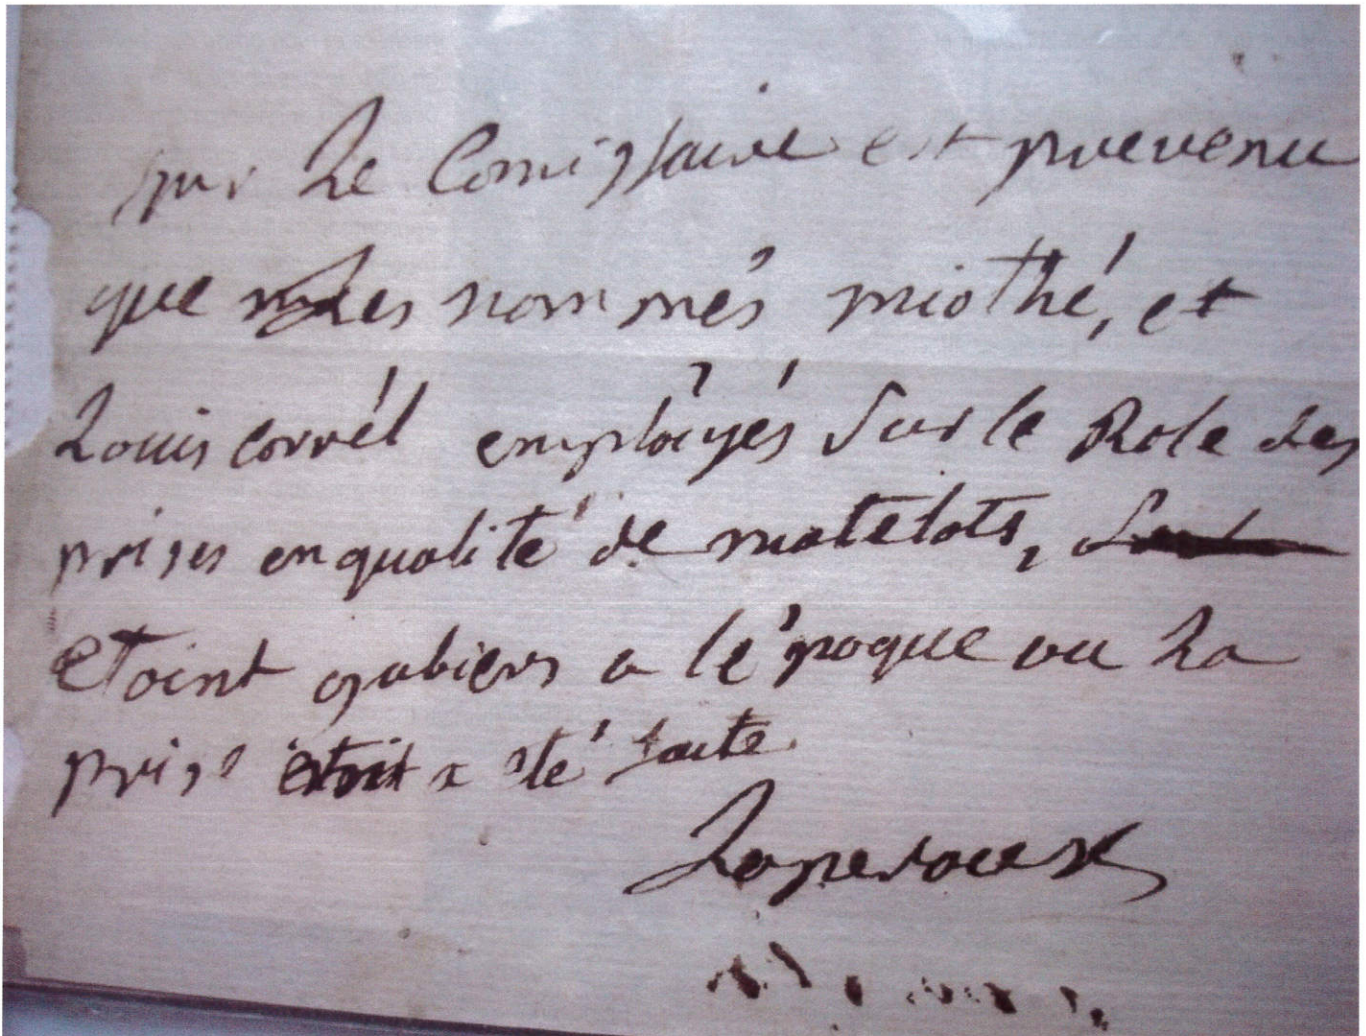 Le Comissaire est prevenu
que les nommés miothé, et
Louis corrél employés Sur le Role des
prises en qualité de matelots,
etoint gabiers a lépoque ou La
prise etoit a eté faite
Laperouse